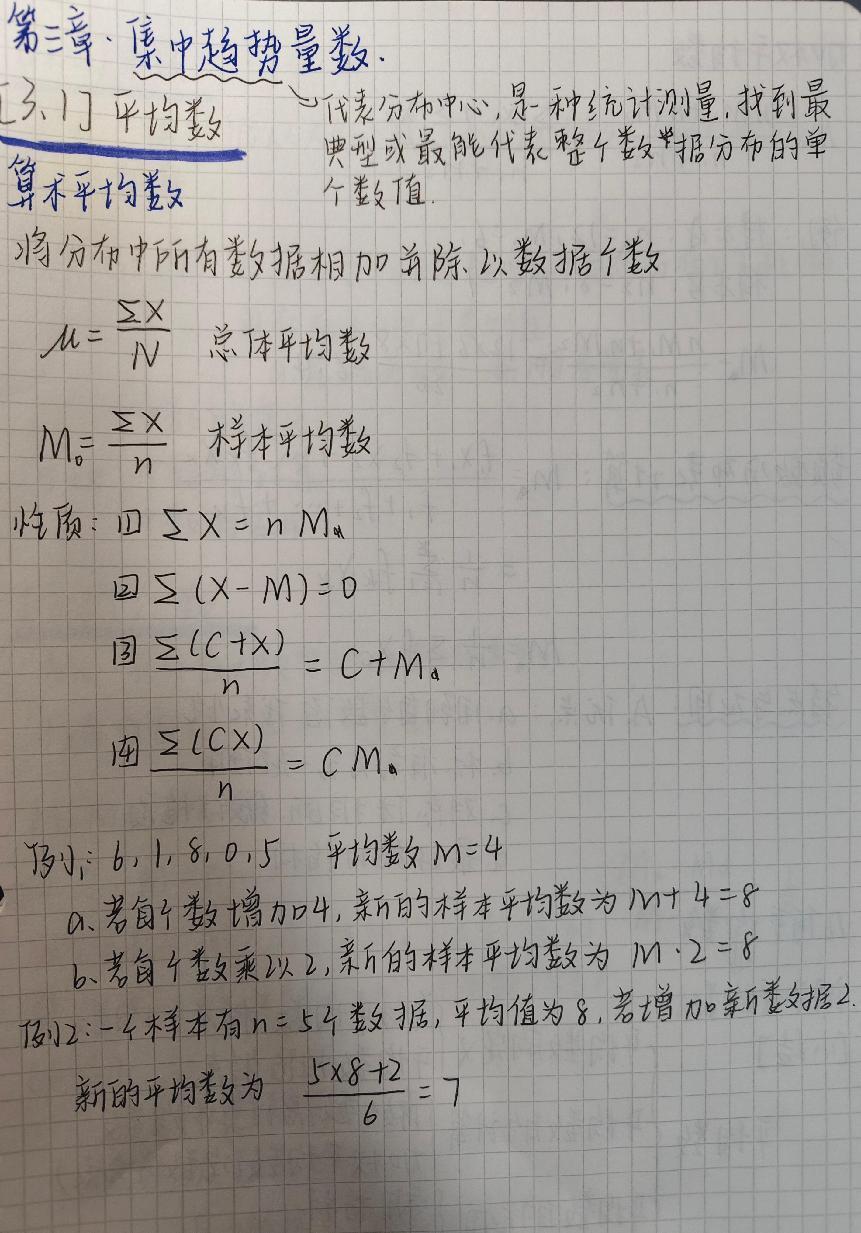 第三章·集中趋势量数.
[3.1] 平均数
代表分布中心,是一种统计测量,找到最
典型或最能代表整个数据分布的单
个数值.
算术平均数
将分布中所有数据相加并除以数据个数
μ = ΣX/N 总体平均数
M₀ = ΣX/n 样本平均数
性质: ① ΣX = nMₐ
② Σ(X-M)=0
③ Σ(C+X)/n = C+Mₐ
④ Σ(CX)/n = CMₐ
例1: 6,1,8,0,5 平均数M=4
a、若每个数增加4,新的样本平均数为M+4=8
b、若每个数乘以2,新的样本平均数为 M·2=8
例2:一个样本有n=5个数据,平均值为8,若增加新数据2.
新的平均数为 (5×8+2)/6 = 7